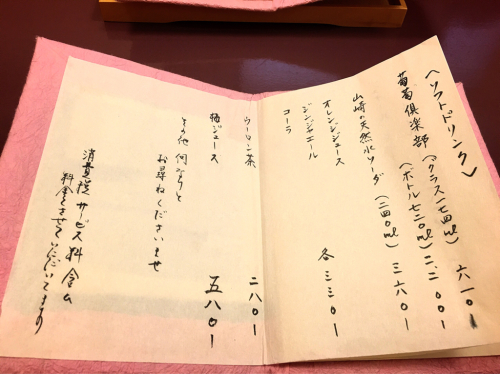 〈ソフトドリンク〉
葡萄倶楽部（グラス一七四ml）六一〇ー
（ボトル七二〇ml）二.二〇〇ー
山崎の天然水ソーダ（二四〇ml）三六〇ー
オレンジジュース
ジンジャエール 各三三〇ー
コーラ
ウーロン茶 二八〇ー
ジュース 五八〇ー
その他 何なりと
お尋ねくださいませ
消費税 サービス料金込
料金とさせていただいてます